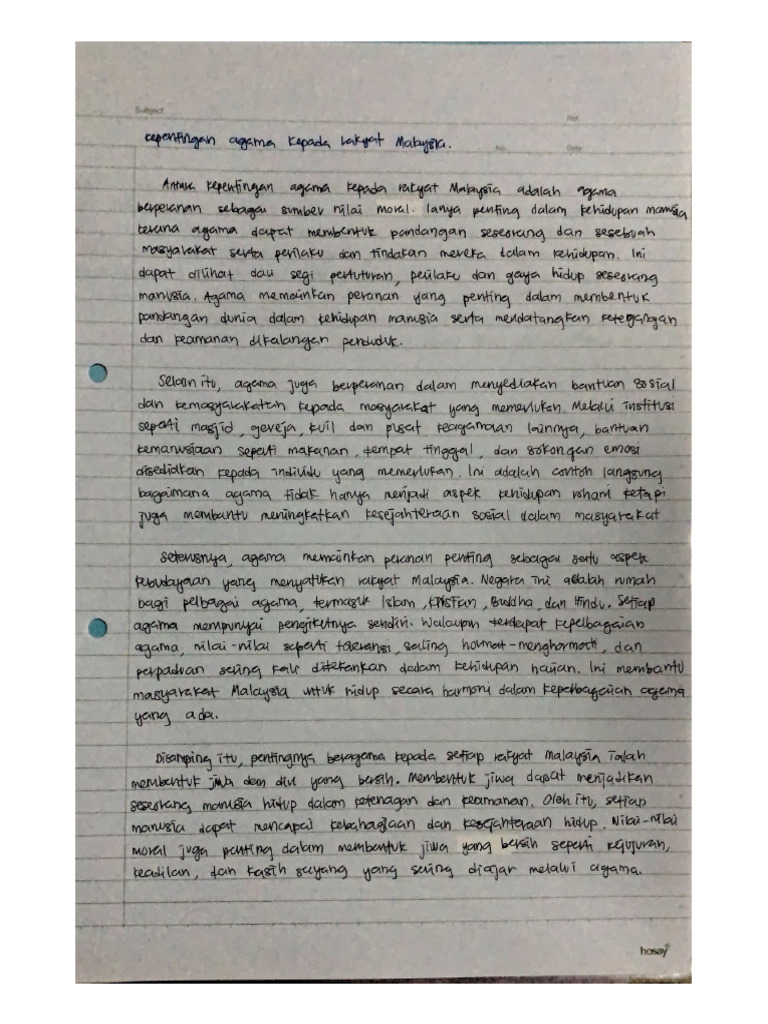 Subject
Ref.
No.
Date
Kepentingan agama kepada rakyat Malaysia.
Antara kepentingan agama kepada rakyat Malaysia adalah agama
berperanan sebagai sumber nilai moral. Ianya penting dalam kehidupan manusia
kerana agama dapat membentuk pandangan seseorang dan sesebuah
masyarakat serta perilaku dan tindakan mereka dalam kehidupan. Ini
dapat dilihat dari segi pertuturan, perilaku dan gaya hidup seseorang
manusia. Agama memainkan peranan yang penting dalam membentuk
pandangan dunia dalam kehidupan manusia serta mendatangkan ketenangan
dan keamanan dikalangan penduduk.
Selain itu, agama juga berperanan dalam menyediakan bantuan sosial
dan kemasyarakatan kepada masyarakat yang memerlukan. Melalui institusi
seperti masjid, gereja, kuil dan pusat keagamaan lainnya, bantuan
kemanusiaan seperti makanan, tempat tinggal, dan sokongan emosi
disediakan kepada individu yang memerlukan. Ini adalah contoh langsung
bagaimana agama tidak hanya menjadi aspek kehidupan rohani tetapi
juga membantu meningkatkan kesejahteraan sosial dalam masyarakat
Seterusnya, agama memainkan peranan penting sebagai satu aspek
kebudayaan yang menyatukan rakyat Malaysia. Negara ini adalah rumah
bagi pelbagai agama, termasuk Islam, Kristian, Buddha, dan Hindu. Setiap
agama mempunyai pengikutnya sendiri. Walaupun terdapat kepelbagaian
agama, nilai-nilai seperti toleransi, saling hormat-menghormati, dan
perpaduan sering kali ditekankan dalam kehidupan harian. Ini membantu
masyarakat Malaysia untuk hidup secara harmoni dalam kepelbagaian agama
yang ada.
Disamping itu, pentingnya beragama kepada setiap rakyat Malaysia ialah
membentuk jiwa dan diri yang bersih. Membentuk jiwa dapat menjadikan
seseorang manusia hidup dalam ketenagan dan keamanan. Oleh itu, setiap
manusia dapat mencapai kebahagiaan dan kesejahteraan hidup. Nilai-nilai
moral juga penting dalam membentuk jiwa yang bersih seperti kejujuran,
keadilan, dan kasih sayang yang sering diajar melalui agama.
hosay